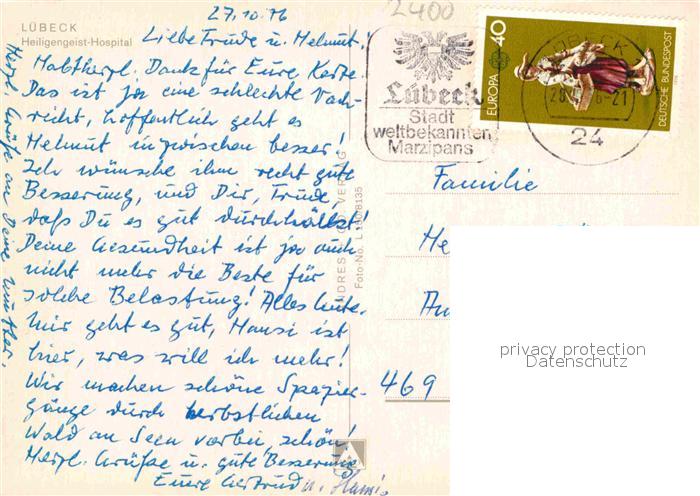 27.10.76
2400
LÜBECK
Heiligengeist-Hospital
Liebe Trude u. Helmut!
Habt herzl. Dank für Eure Karte.
Das ist ja eine schlechte Nach-
richt, hoffentlich geht es
Helmut inzwischen besser!
Ich wünsche ihm recht gute
Besserung, und Dir, Trude,
daß Du es gut durchhältst!
Deine Gesundheit ist ja auch
nicht mehr die Beste für
solche Belastung! Alles Gute.
Mir geht es gut, Hansi ist
hier, was will ich mehr!
Wir machen schöne Spazier-
gänge durch herbstlichen
Wald an Seen vorbei, schön!
Herzl. Grüße u. gute Besserung
Eure Gertrud u. Hansi
Herzl. Grüße an Deine Mutter.
ANDRES VERLAG
Foto-No. L 8135
Lübeck
Stadt
weltbekannten
Marzipans
LÜBECK
24
EUROPA 40
DEUTSCHE BUNDESPOST
Familie
He
469
privacy protection
Datenschutz